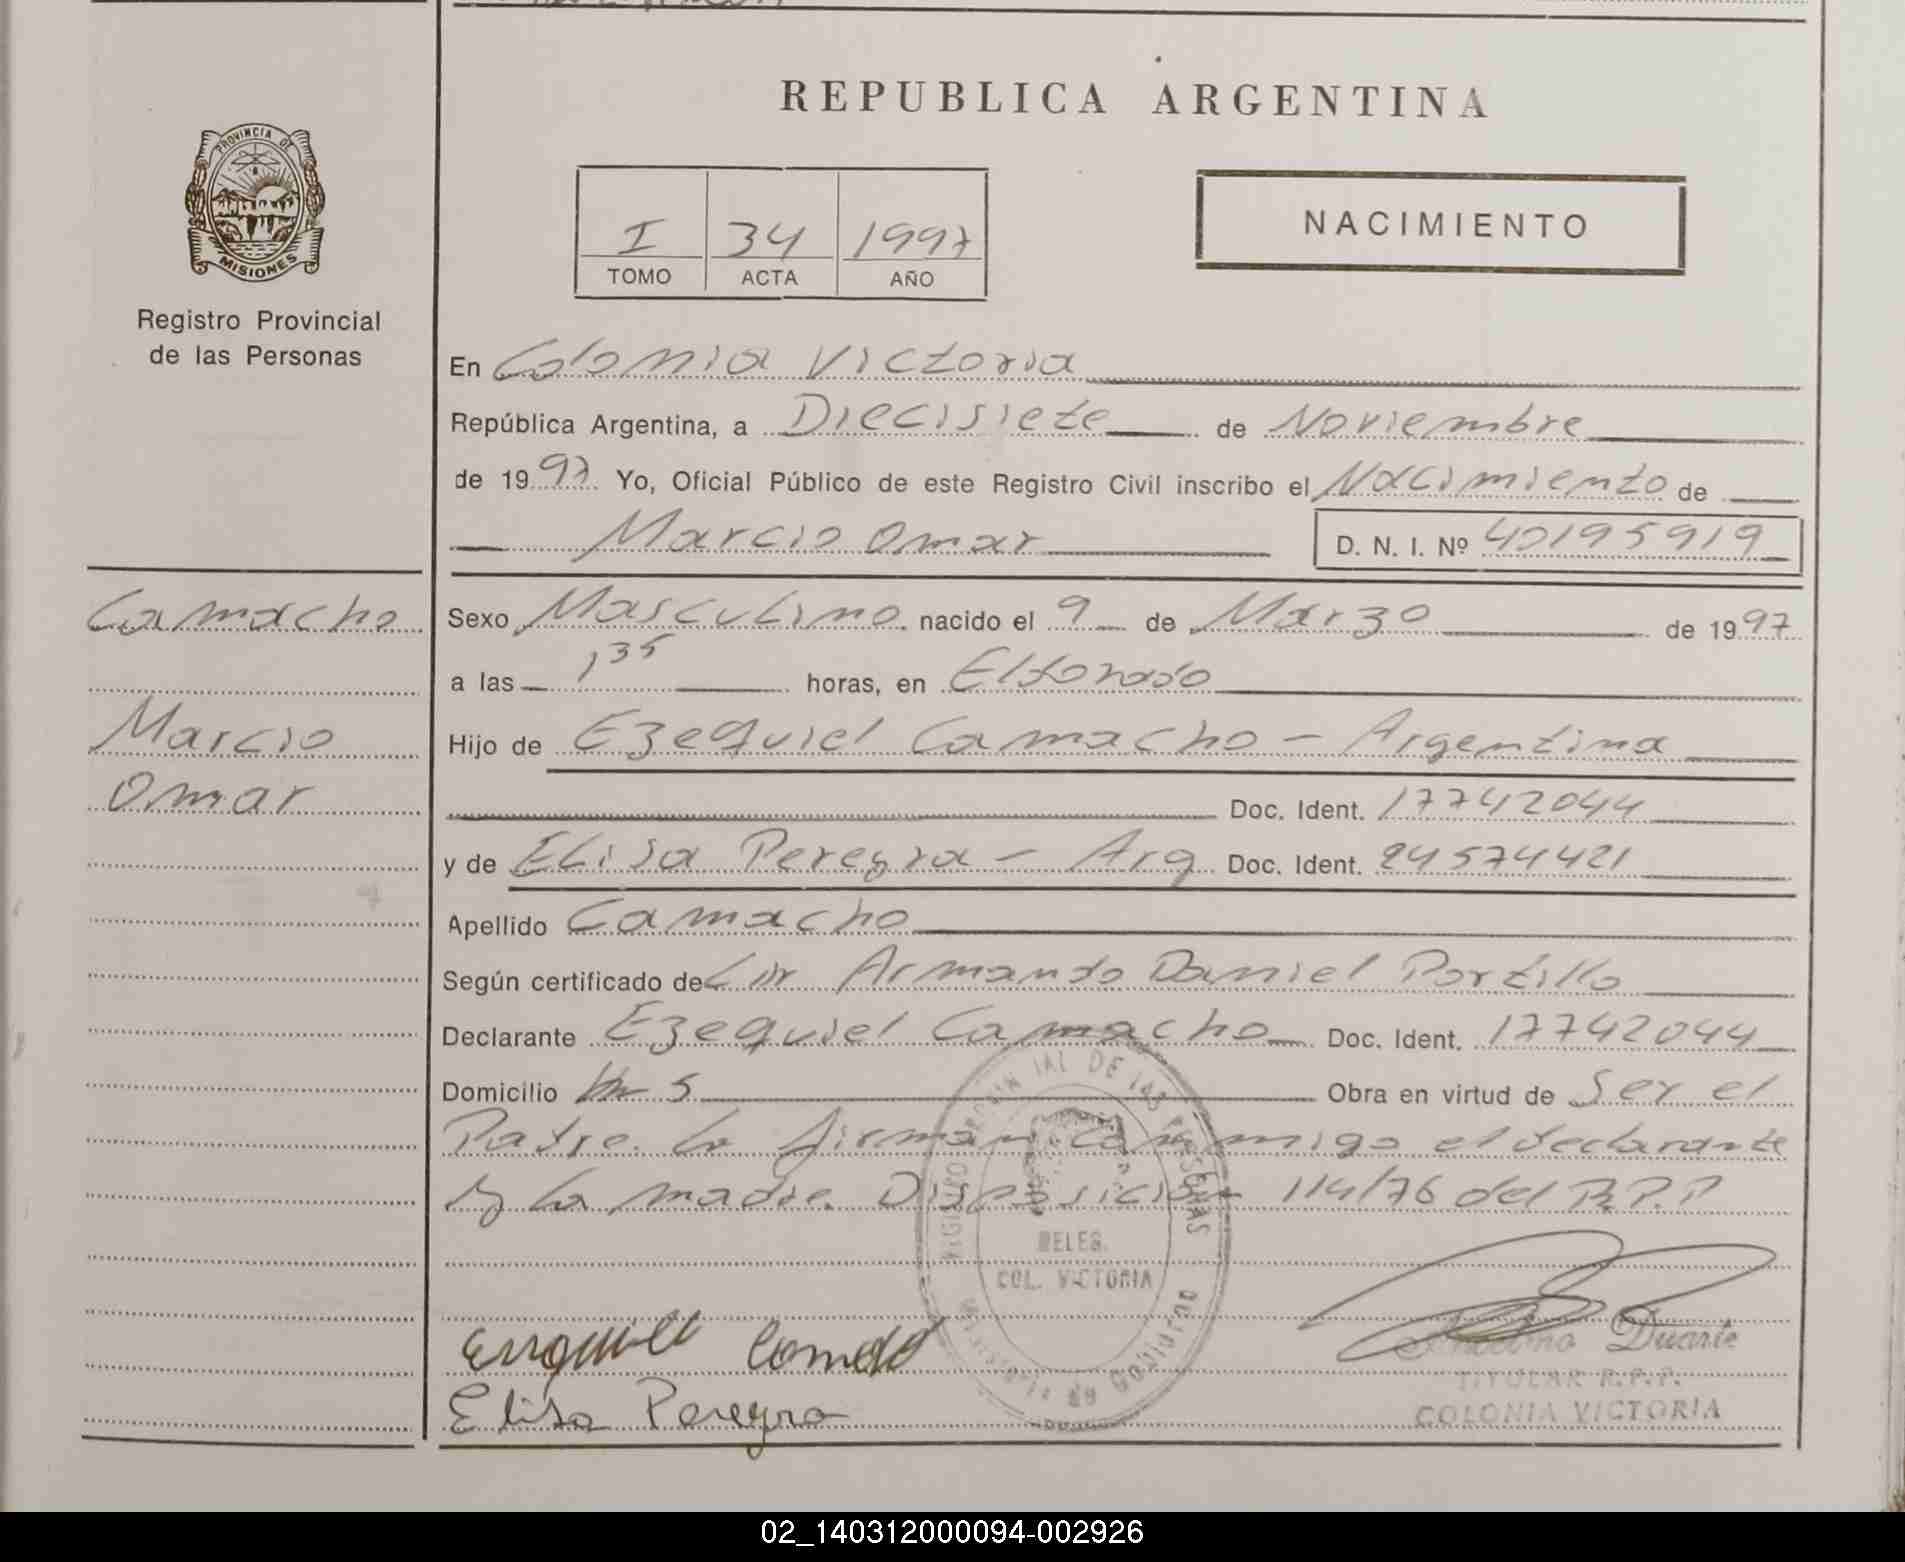 REPUBLICA ARGENTINA
PROVINCIA DE
MISIONES
Registro Provincial
de las Personas
I 34 1997
TOMO ACTA AÑO
NACIMIENTO
En Colonia Victoria
República Argentina, a Diecisiete de Noviembre
de 1997. Yo, Oficial Público de este Registro Civil inscribo el Nacimiento de
Marcio Omar D. N. I. Nº 40195919
Camacho
Marcio
Omar
Sexo Masculino nacido el 9 de Marzo de 1997
a las 1 35 horas, en Eldorado
Hijo de Ezequiel Camacho - Argentina
Doc. Ident. 17742044
y de Elisa Pereyra - Arg Doc. Ident. 24574421
Apellido Camacho
Según certificado de Armando Daniel Portillo
Declarante Ezequiel Camacho Doc. Ident. 17742044
Domicilio Km 5 Obra en virtud de Ser el
Padre. La firman conmigo el declarante
y la madre. Disposición 114/76 del R.P.P
DELEG.
COL. VICTORIA
Elisa Pereyra
Duarte
TITULAR R.P.P.
COLONIA VICTORIA
02_140312000094-002926